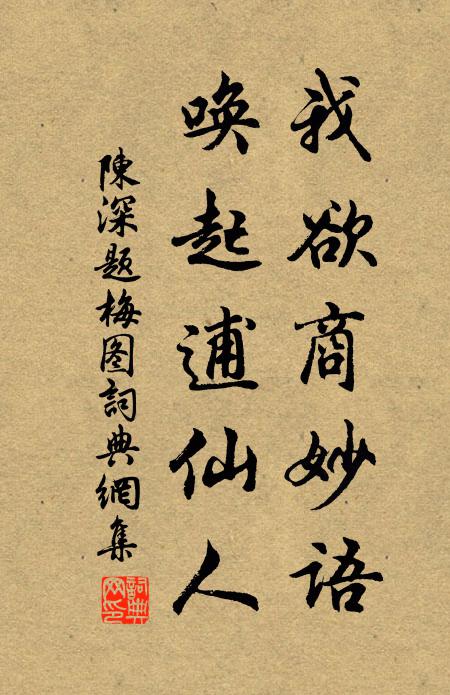 我欲商妙语
唤起逋仙人
陳深题梅图詞典網集
詞典网印